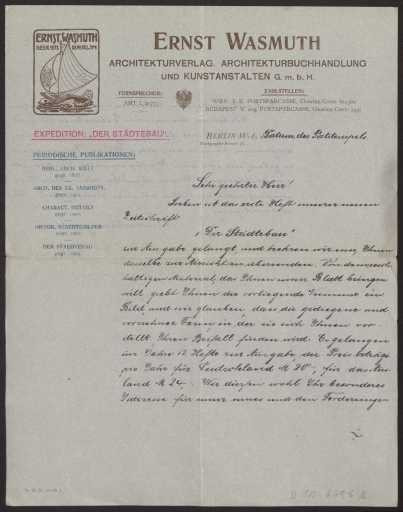 ERNST WASMUTH
ERNST WASMUTH
ARCHITEKTURVERLAG, ARCHITEKTURBUCHHANDLUNG
UND KUNSTANSTALTEN G. m. b. H.
FERNSPRECHER:
AMT I,
ZAHLSTELLEN:
WIEN, K. K. POSTSPARCASSE, Clearing-Conto
BUDAPEST POSTSPARCASSE, Clearing-Conto
EXPEDITION: „DER STÄDTEBAU“.
BERLIN W. 8, Datum des Poststempels
PERIODISCHE PUBLIKATIONEN:
DER STÄDTEBAU
Sehr geehrter Herr!
Soeben ist das erste Heft unserer neuen
Zeitschrift
„Der Städtebau“
zur Ausgabe gelangt und beehren wir uns Ihnen
dasselbe zur Ansicht zu übersenden. Von dem
haltigen Material, das Ihnen unser Blatt bringen
will giebt Ihnen die vorliegende Nummer ein
Bild und wir glauben, dass die gediegene und
vornehme Form in der sie sich Ihnen vor-
stellt Ihren Beifall finden wird. Es gelangen
im Jahre 12 Hefte zur Ausgabe, der Preis beträgt
pro Jahr für Deutschland M 20.–, für das Aus-
land M 24.– Wir dürfen wohl Ihr besonderes
Interesse für unser neues und den Forderungen